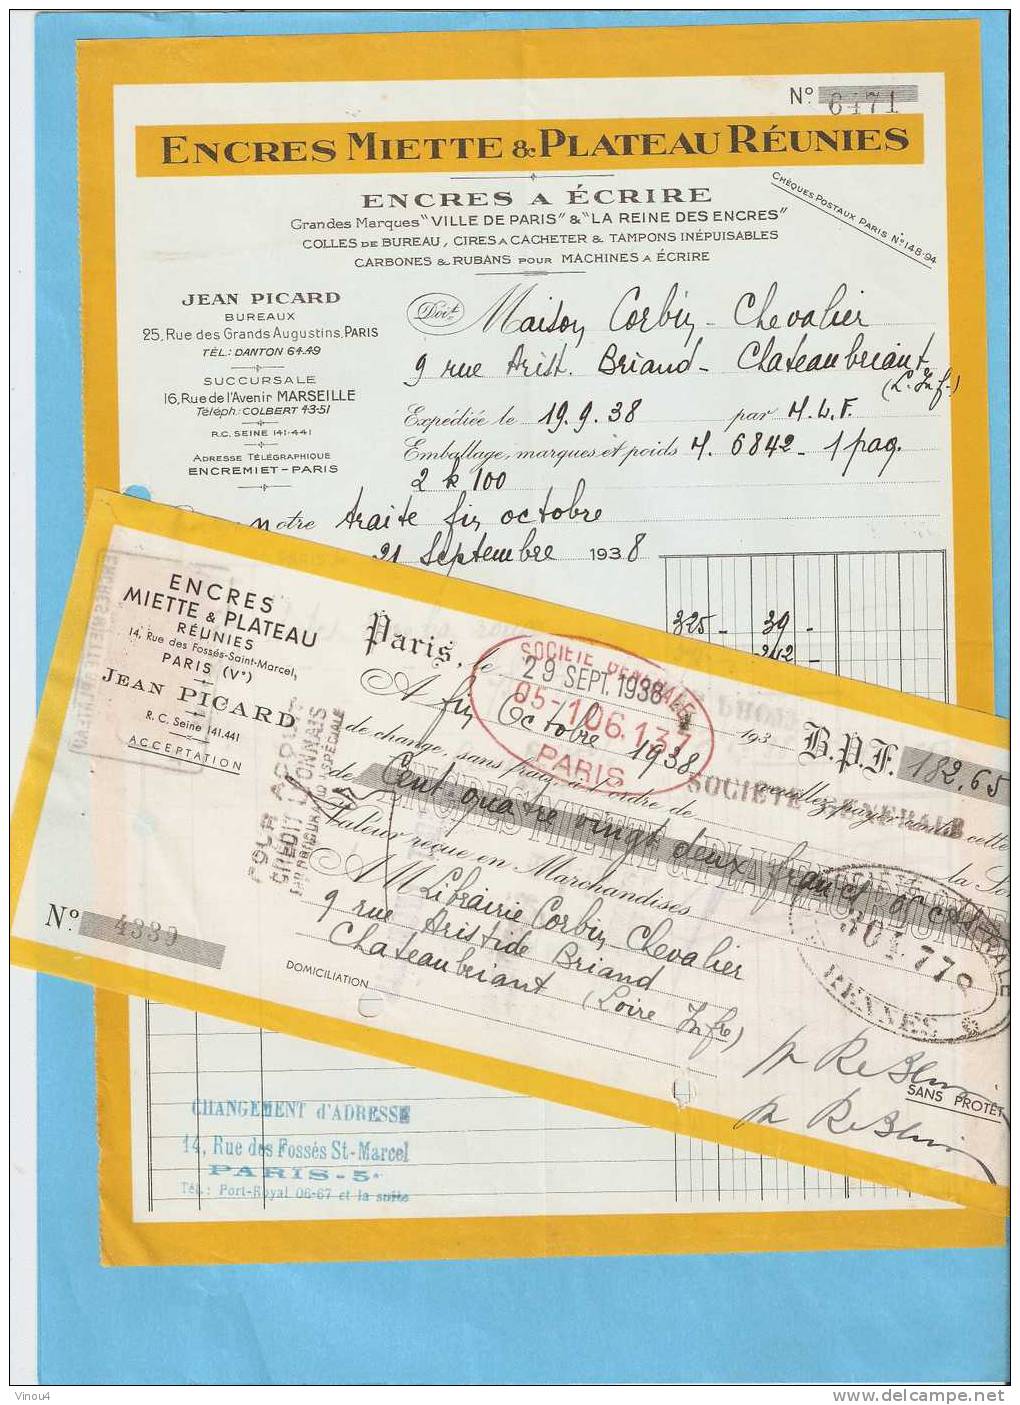 Nº 6471
ENCRES MIETTE & PLATEAU RÉUNIES
ENCRES A ÉCRIRE
Grandes Marques "VILLE DE PARIS" & "LA REINE DES ENCRES"
COLLES DE BUREAU, CIRES A CACHETER & TAMPONS INÉPUISABLES
CARBONES & RUBANS POUR MACHINES A ÉCRIRE
CHÈQUES POSTAUX PARIS Nº 148-94
JEAN PICARD
BUREAUX
25, Rue des Grands Augustins, PARIS
TÉL.: DANTON 64-49
SUCCURSALE
16, Rue de l'Avenir MARSEILLE
Téléph: COLBERT 43-51
R.C. SEINE 141-441
ADRESSE TÉLÉGRAPHIQUE
ENCREMIET-PARIS
Doit
Maison Corbin-Chevalier
9 rue Arist. Briand - Chateaubriant
(L. Inf.)
Expédiée le 19.9.38 par M.L.F.
Emballage, marques et poids M. 6842 - 1 paq.
2 k 100
notre traite fin octobre
21 Septembre 1938
325 - 39 -
ENCRES
MIETTE & PLATEAU
RÉUNIES
14, Rue des Fossés-Saint-Marcel,
PARIS (Vº)
JEAN PICARD
R. C. Seine 141.441
ACCEPTATION
Paris, le 193
SOCIETE GENERALE
29 SEPT. 1938
05-106.137
PARIS
B.P.F. 182,65
A fin Octobre 1938 veuillez payer contre cette
de change, sans frais, à l'ordre de SOCIETE GENERALE la Som
de Cent quatre vingt deux francs
ENCRES MIETTE & PLATEAU RÉUNIES
Valeur reçue en Marchandises
POUR ACQUIT
CREDIT LYONNAIS
A M Librairie Corbin Chevalier
9 rue Aristide Briand
Chateaubriant (Loire Infre)
Nº 4339
DOMICILIATION
301.770
RENNES
SANS PROTÊT
CHANGEMENT d'ADRESSE
14, Rue des Fossés St-Marcel
PARIS-5e
Tél.: Port-Royal 06-67 et la suite
Vinou4
www.delcampe.net